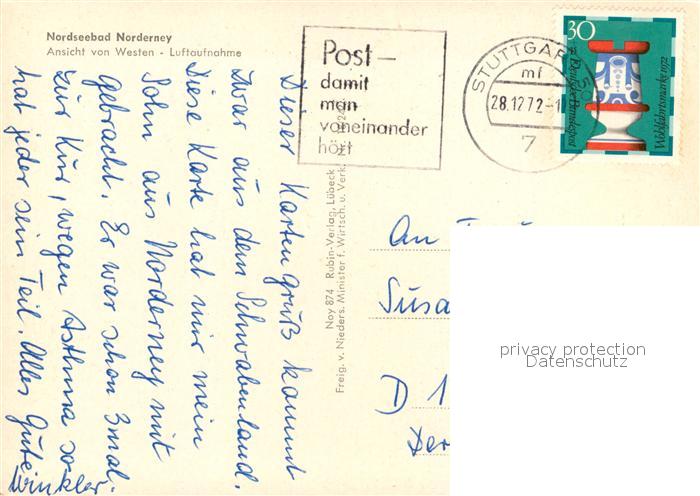 Nordseebad Norderney
Ansicht von Westen - Luftaufnahme
Post –
damit
man
voneinander
hört
STUTTGART
mf
28.12.72
7
30
Deutsche Bundespost
Wohlfahrtsmarke 1972
Dieser Kartengruß kommt
zwar aus dem Schwabenland.
Diese Karte hat mir mein
Sohn aus Norderney mit
gebracht. Er war schon 3mal
zur Kur, wegen Asthma so
hat jeder sein Teil. Alles Gute
Winkler.
Noy 874 Rubin-Verlag, Lübeck
Freig. v. Nieders. Minister f. Wirtsch. u. Verk. Nr.
An
Susa
D 1
privacy protection
Datenschutz